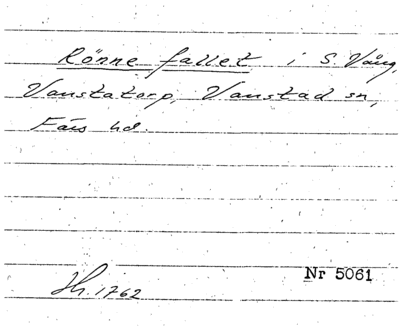 Rönne fallet i S. Vång,
Vanstatorp, Vanstad sn,
Färs hd.
Nr 5061
Hh. 1762